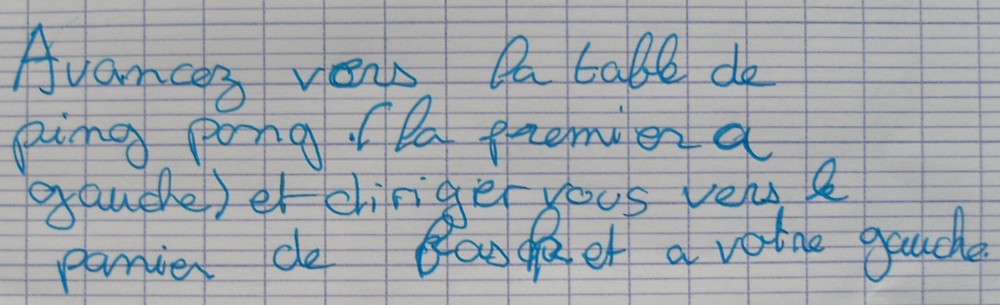 Avancez vers la table de
ping pong .(la premier a
gauche) et diriger vous vers le
panier de basket a votre gauche.